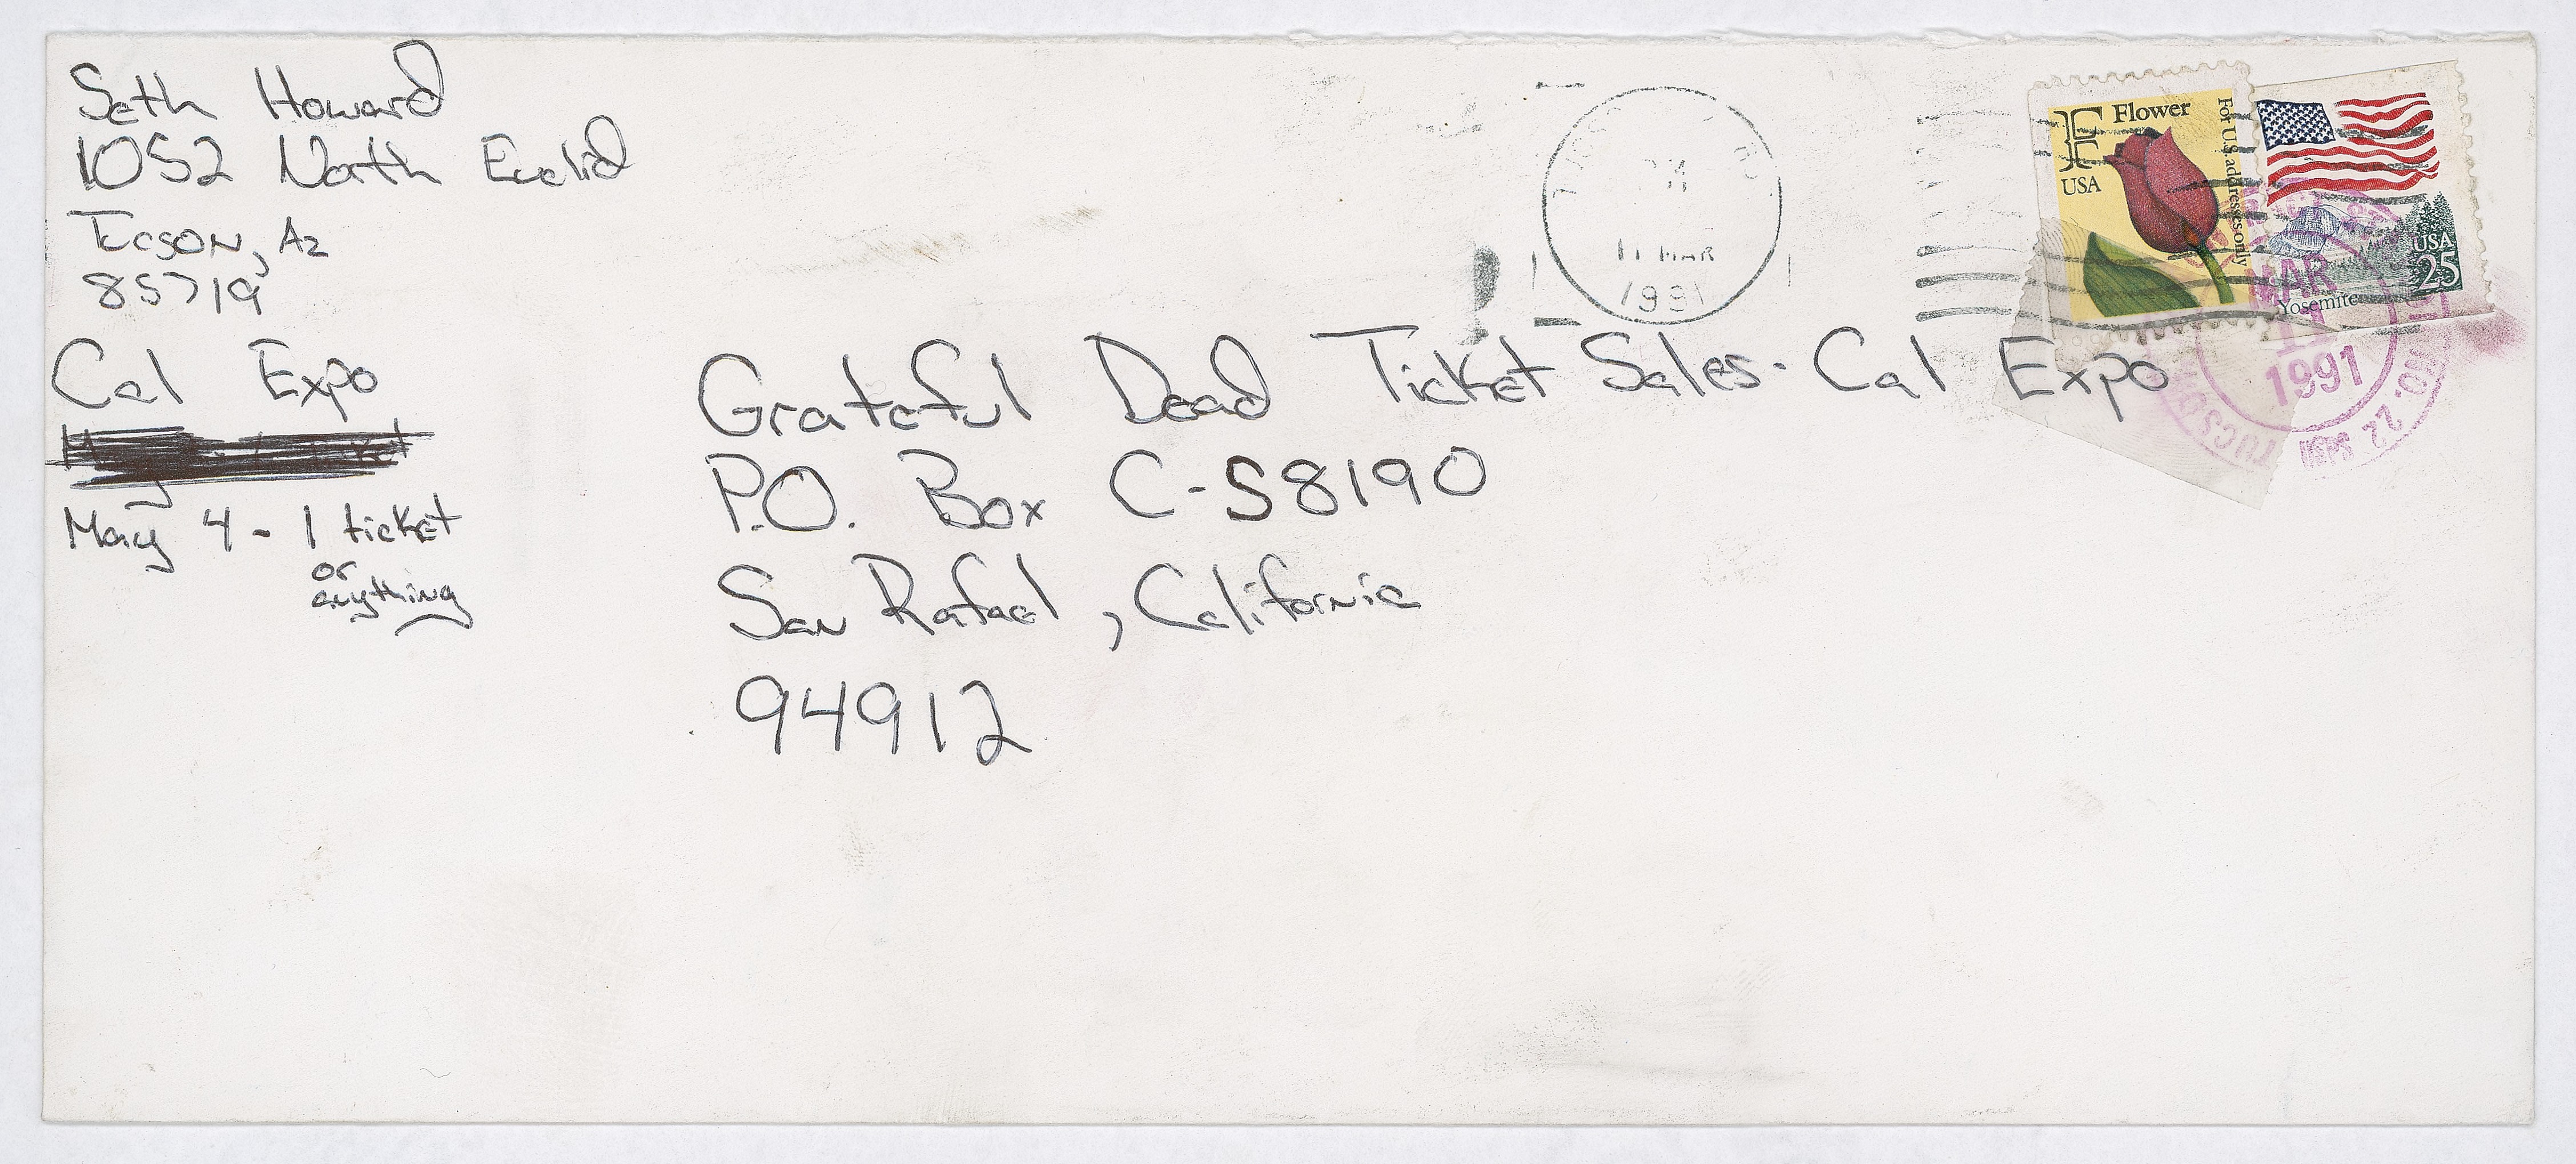 Seth Howard
1052 North Euclid
Tucson, Az
85719
Cal Expo
May 4 - 1 ticket
or
anything
Grateful Dead Ticket Sales - Cal Expo
P.O. Box C-S8190
San Rafael, California
94912
11 MAR
1991
F Flower
USA
For U.S. addresses only
USA
25
Yosemite
MAR
11
1991
TUCSON